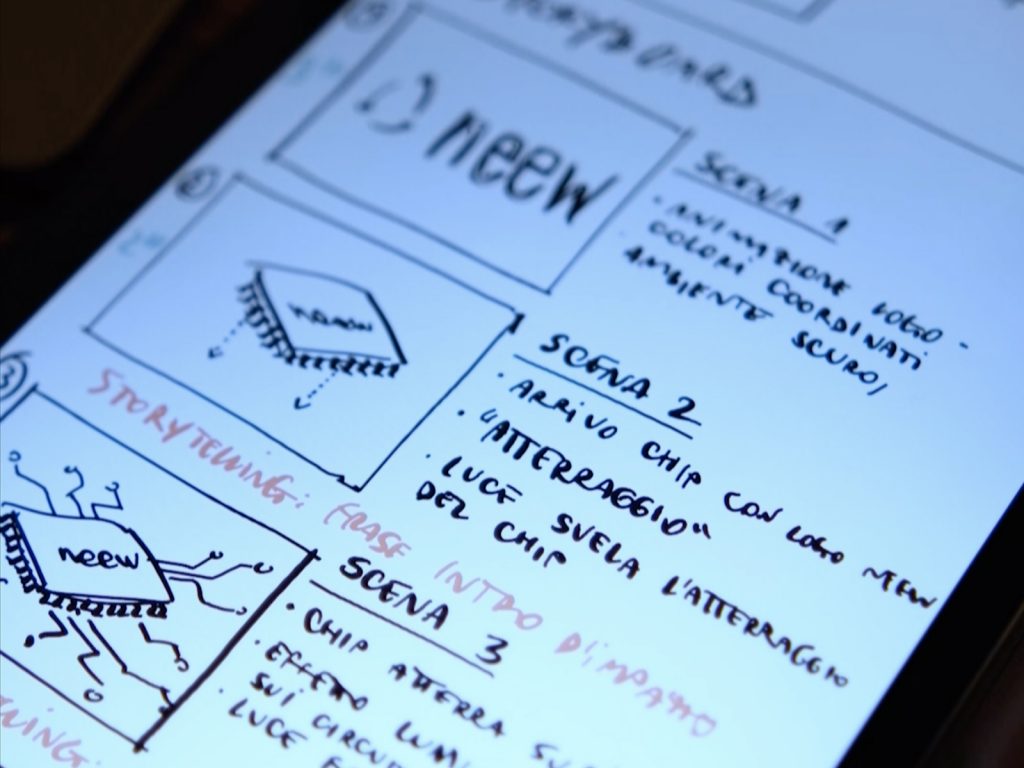 STORYBOARD
1
neew
SCENA 1
• ANIMAZIONE LOGO -
COLORI COORDINATI
AMBIENTE SCURO,
2
SCENA 2
• ARRIVO CHIP CON LOGO NEEW
• "ATTERRAGGIO"
• LUCE SVELA L'ATTERRAGGIO
DEL CHIP
STORYTELLING: FRASE INTRO D'IMPATTO
3
neew
SCENA 3
• CHIP ATTERRA
• EFFETTO
SUI
• LUCE